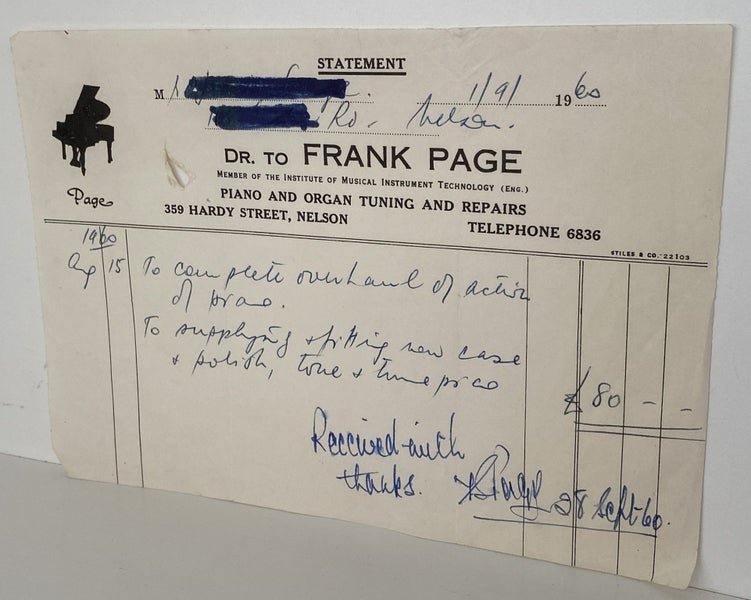 STATEMENT
M 1/9/ 1960
Rd. Nelson.
DR. TO FRANK PAGE
MEMBER OF THE INSTITUTE OF MUSICAL INSTRUMENT TECHNOLOGY (ENG.)
PIANO AND ORGAN TUNING AND REPAIRS
359 HARDY STREET, NELSON TELEPHONE 6836
Page
STILES & CO. 22103
1960
Aug 15 To complete overhaul of action
of piano.
To supplying & fitting new case
& polish, tone & tune piano
£ 80 - -
Received with
thanks. 28 Sept-60.